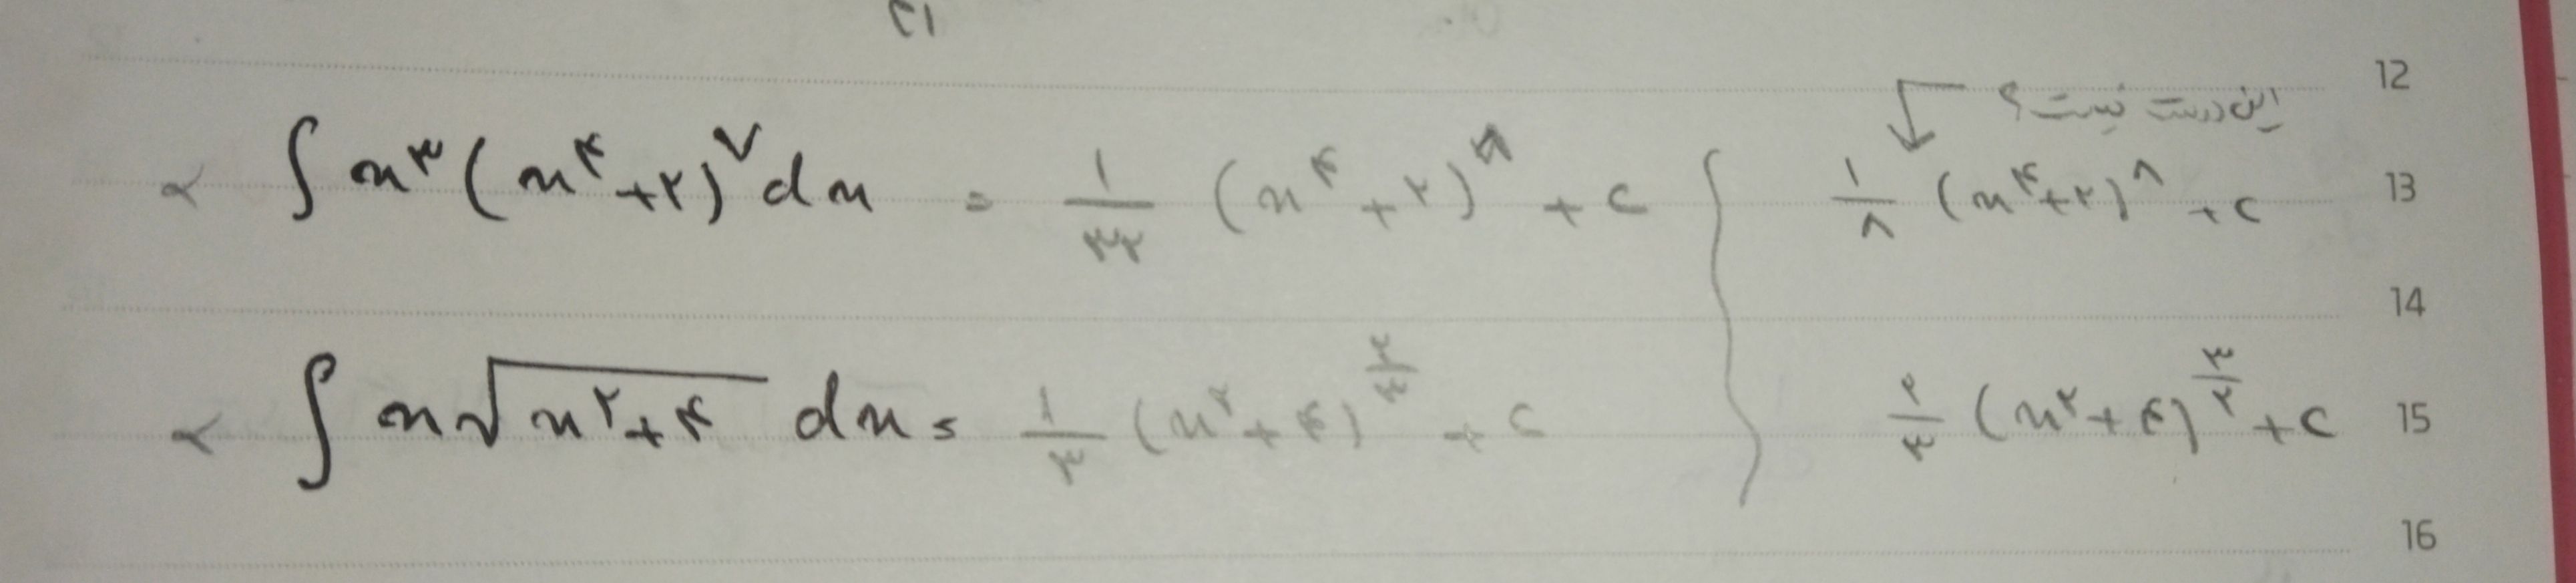 12
این درست نیست؟
∫ x^۳ (x^۴ + ۲)^۷ dx = ۱/۳۲ (x^۴ + ۲)^۸ + c } ۱/۸ (x^۴ + ۲)^۸ + c 13
14
∫ x √(x^۲ + ۴) dx = ۱/۳ (x^۲ + ۴)^(۳/۲) + c } ۲/۳ (x^۲ + ۴)^(۳/۲) + c 15
16